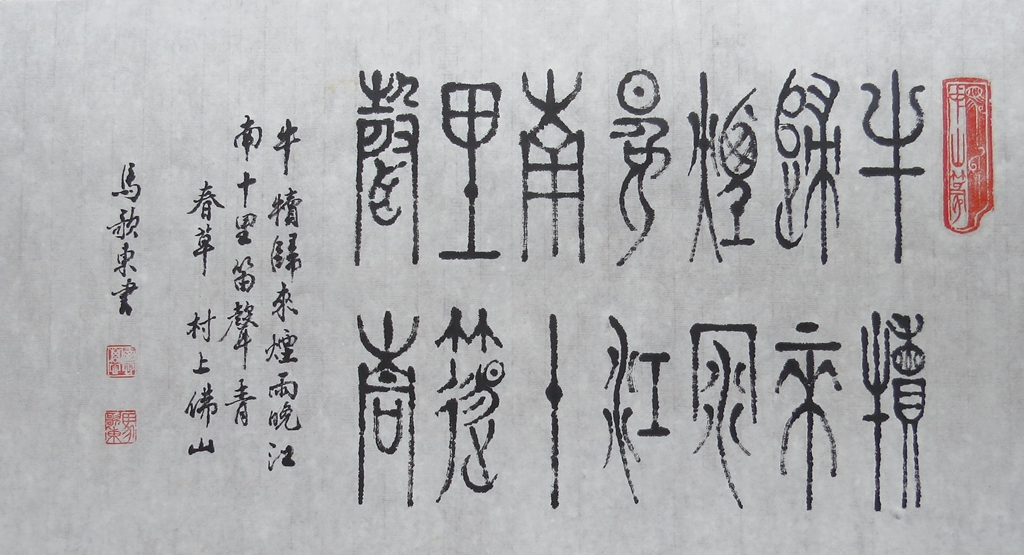 中山篆
牛犢
歸來
煙雨
晚江
南十
里笛
聲青
牛犢歸來煙雨晚江
南十里笛聲青
春草村上佛山
馬歌東書
馬歌東